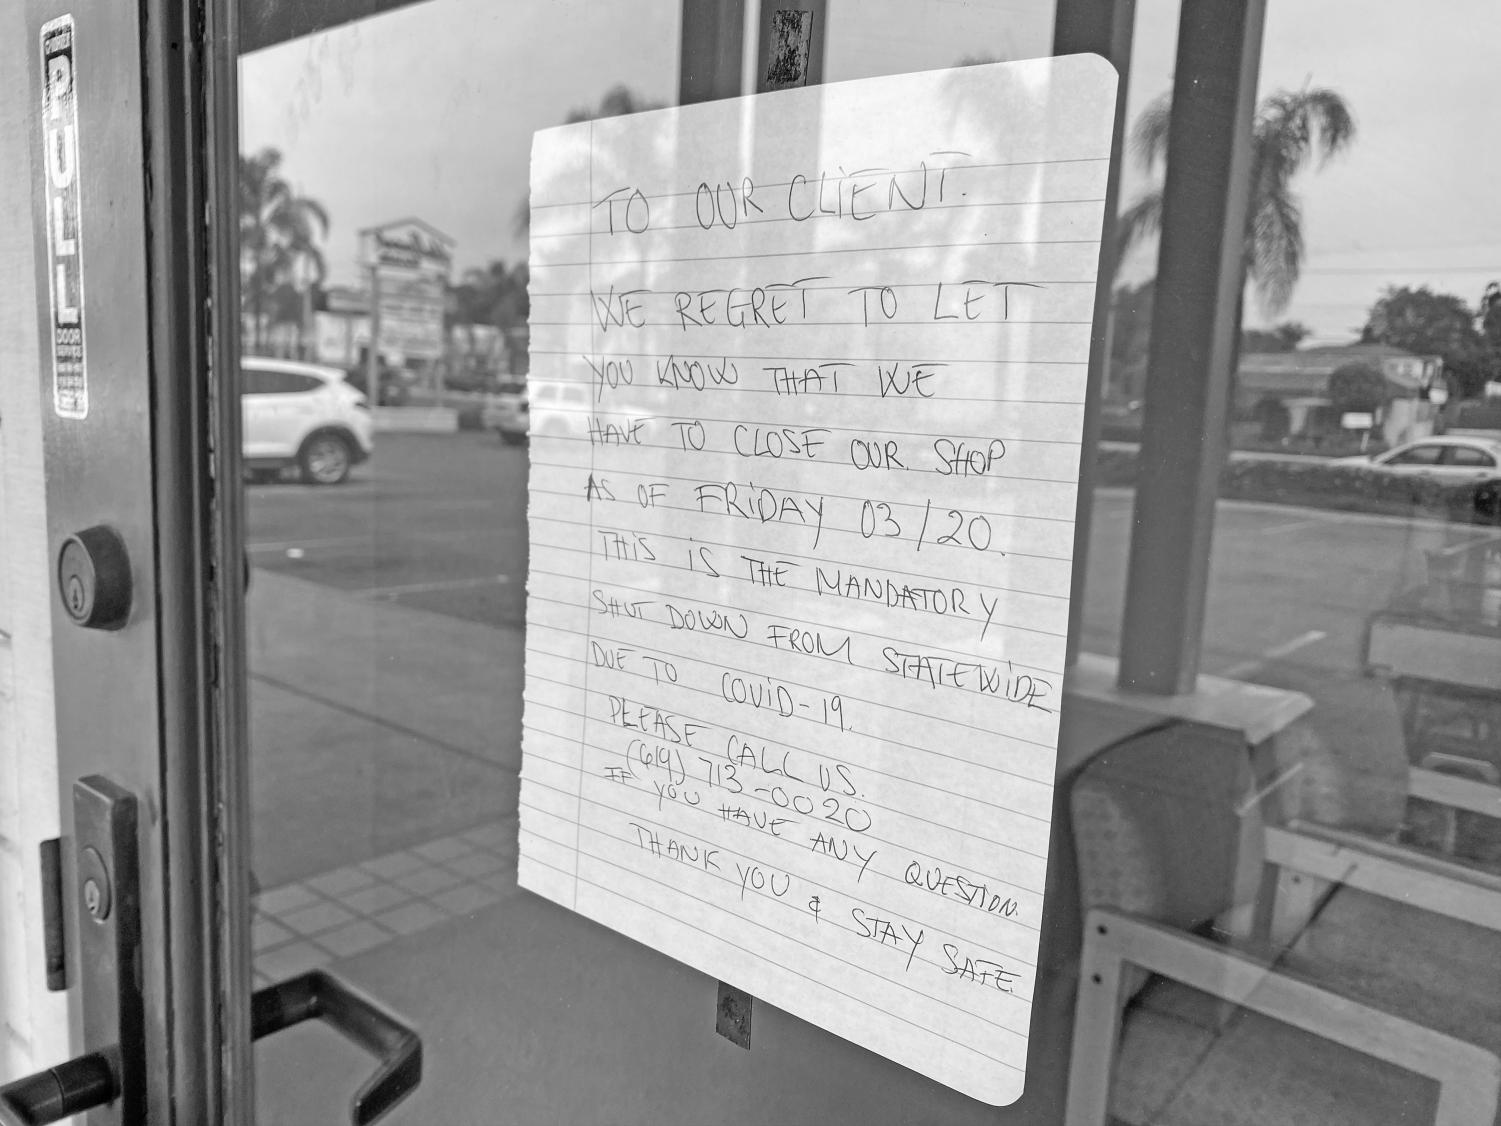 PULL
DOOR
TO OUR CLIENT.
WE REGRET TO LET
YOU KNOW THAT WE
HAVE TO CLOSE OUR SHOP
AS OF FRIDAY 03/20.
THIS IS THE MANDATORY
SHUT DOWN FROM STATEWIDE
DUE TO COVID-19.
PLEASE CALL US.
(619) 713-0020
IF YOU HAVE ANY QUESTION.
THANK YOU & STAY SAFE.